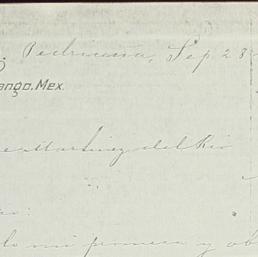 Pedriceña, Sep. 28
ango, Mex.
Martinez del Rio
mi primera y ob